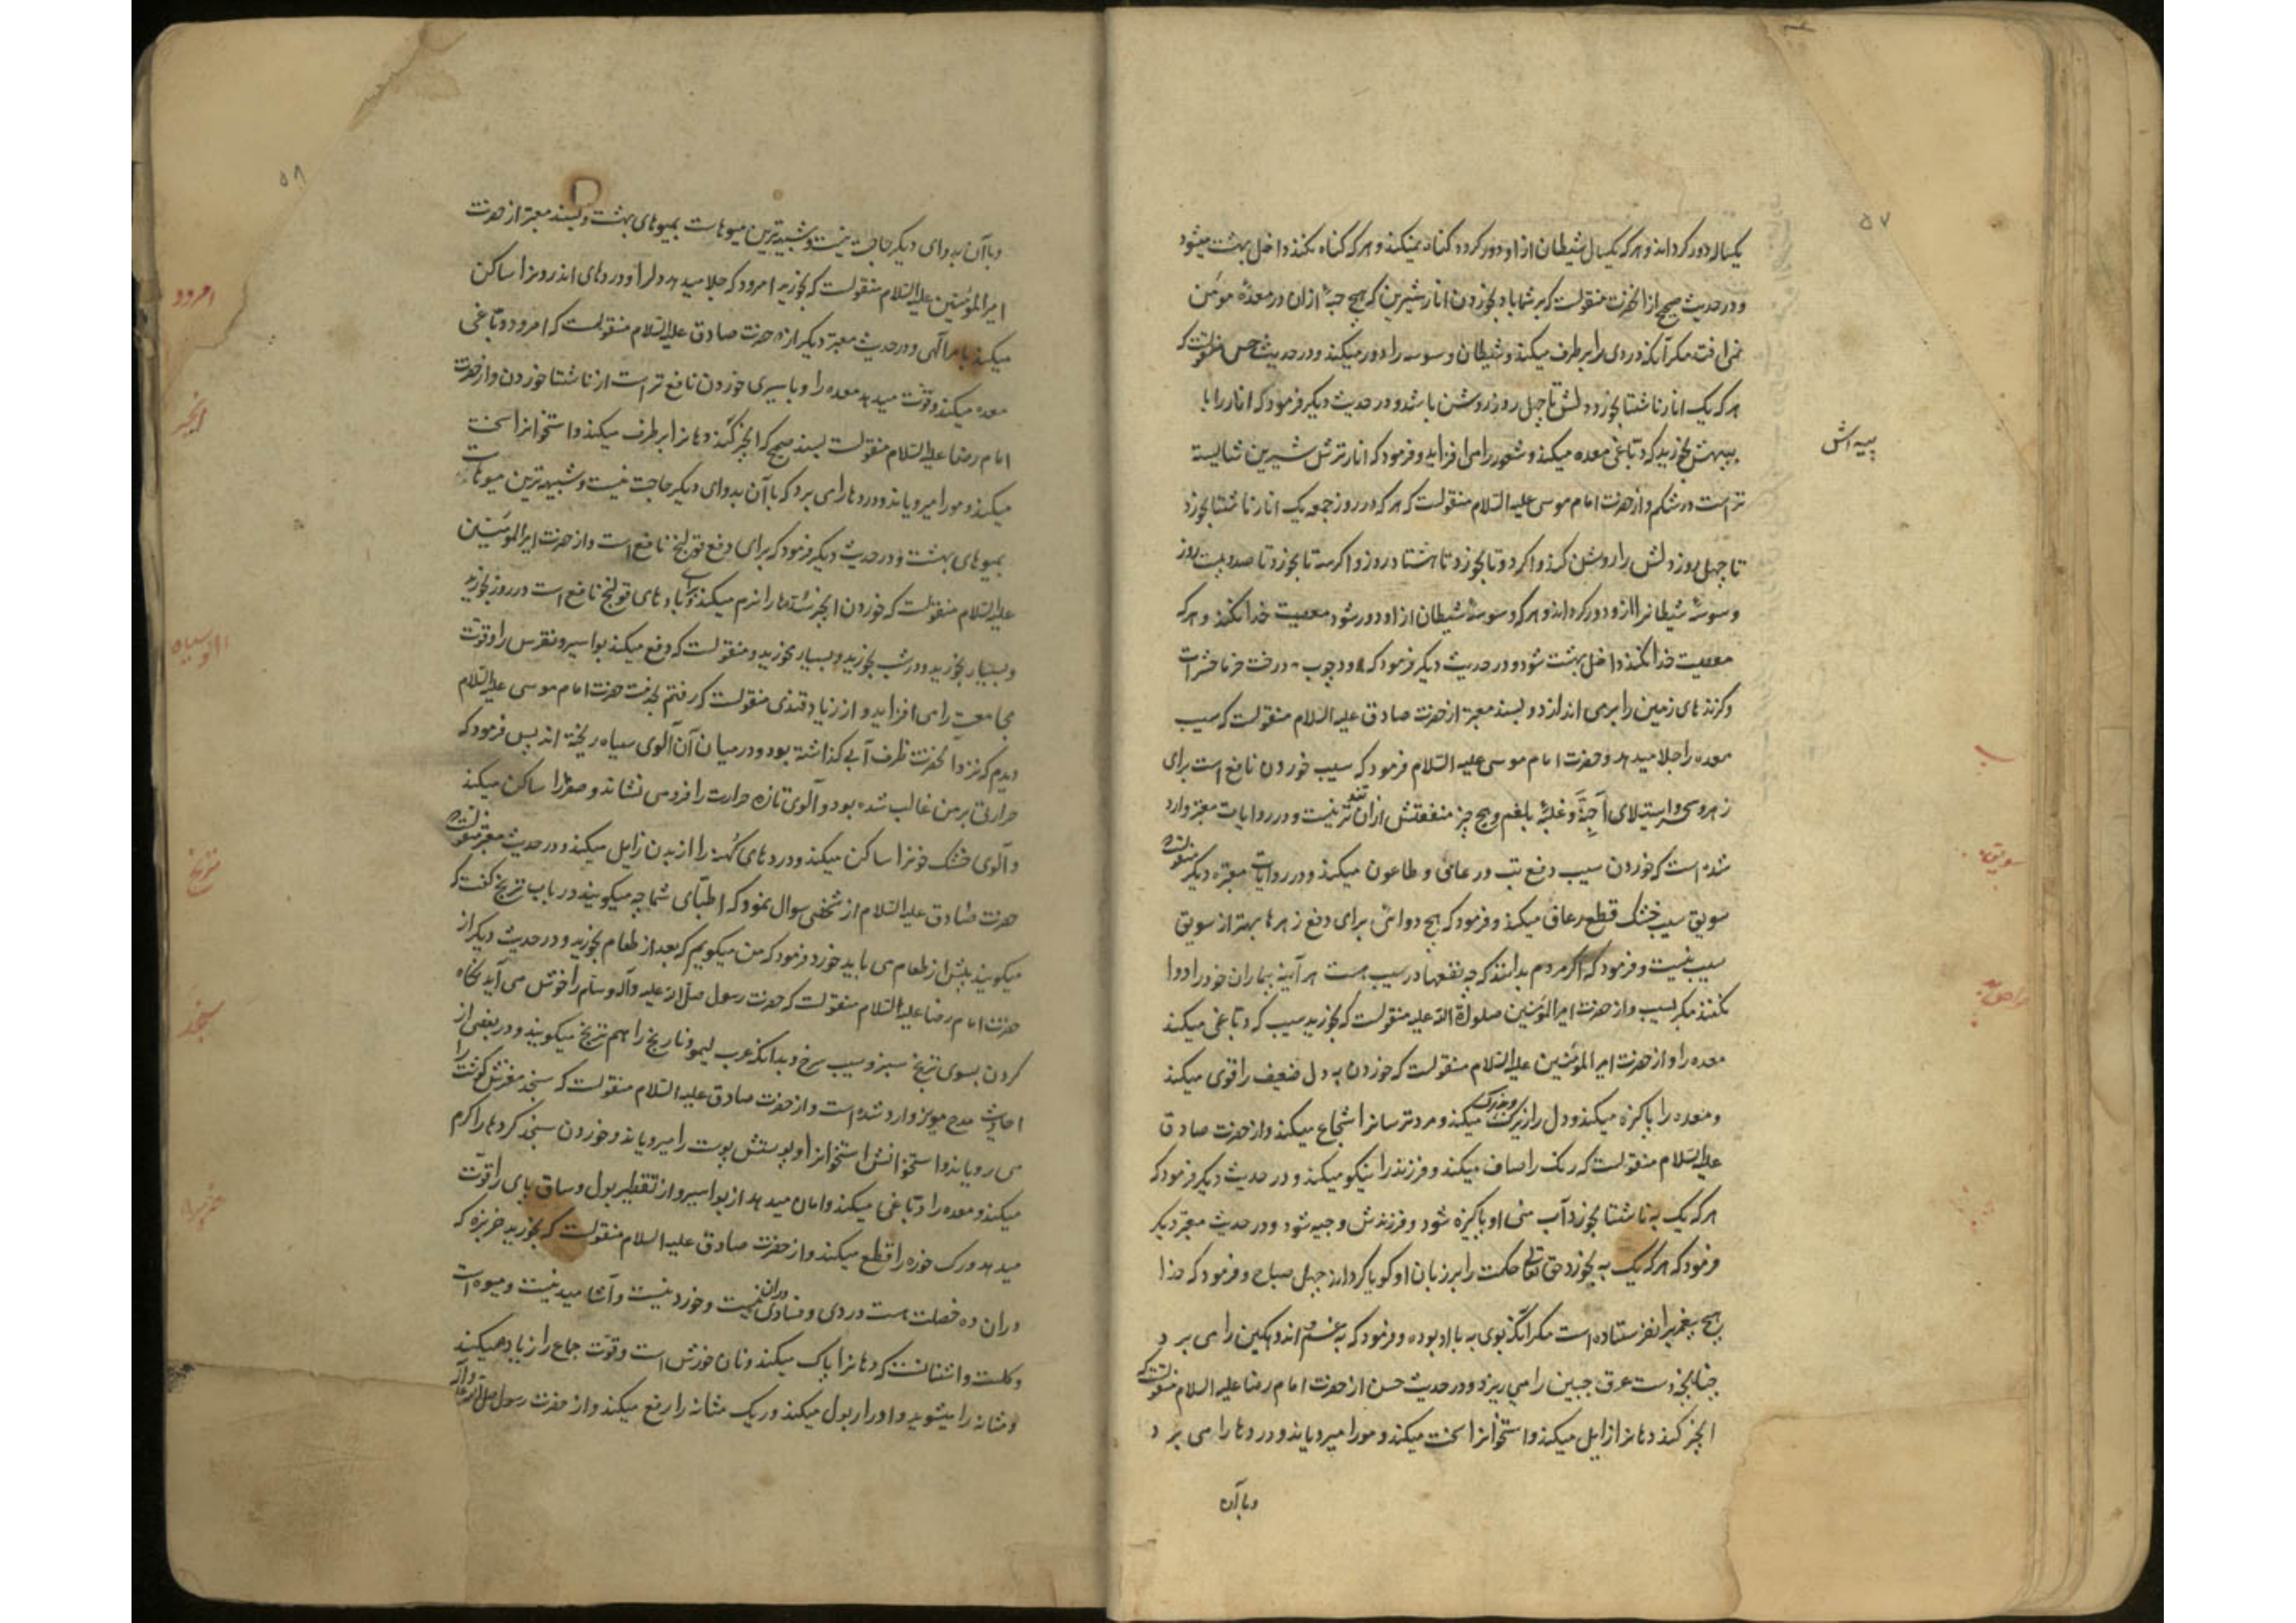 ۵۷
یکسال دور کرداند و هر که یکسال شیطان از او دور کردد کناه نمیکند و هر که کناه نکند داخل بهشت میشود
و در حدیث صحیح از انحضرت منقولست که بر شما باد بخوردن انار شیرین که هیچ حبهٔ ازان در معدهٔ مومن
نمی افتد مکر آنکه دردی را برطرف میکند و شیطان وسوسه را دور میکند و در حدیث حسن منقولست که
هر که یک انار ناشتا بخورد دلش تا چهل روز روشن باشد و در حدیث دیکر فرمود که انار را با
پیهش بخورید که دباغی معده میکند و شعور را می افزاید و فرمود که انار ترش شیرین شایسته
پیه اش
تر است در شکم و از حضرت امام موسی علیه السلام منقولست که هر که در روز جمعه یک انار ناشتا بخورد
تا چهل روز دلش را روشن کند و اکر دو تا بخورد تا هشتاد روز و اکر سه تا بخورد تا صد و بیست روز
و سوسهٔ شیطانرا از و دور کرداند و هر که وسوسهٔ شیطان از او دور شود معصیت خدا نکند و هر که
معصیت خدا نکند داخل بهشت شود و در حدیث دیکر فرمود که دود چوب درخت خرما حشرات
و کزندهای زمین را برمی اندازد و بسند معتبر از حضرت صادق علیه السلام منقولست که سیب
معده را جلا میدهد و حضرت امام موسی علیه السلام فرمود که سیب خوردن نافع است برای
زهر و سحر و استیلای اجنّه و غلبهٔ بلغم و هیچ چیز منفعتش ازان تندتر نیست و در روایات معتبر وارد
شده است که خوردن سیب دفع تب و رعاف و طاعون میکند و در روایات معتبره دیکر منقولست که
سویق سیب خشک قطع رعاف میکند و فرمود که هیچ دوائی برای دفع زهرها بهتر از سویق
سیب نیست و فرمود که اکر مردم بدانند که چه نفعها در سیب هست هر آینه بیماران خود را دوا
نکنند مکر بسیب و از حضرت امیر المؤمنین صلوات الله علیه منقولست که بخورید سیب که دباغی میکند
معده را و از حضرت امیر المؤمنین علیه السلام منقولست که خوردن به دل ضعیف را قوی میکند
و معده را پاکیزه میکند و دل را زیرک میکند و مرد ترسانرا شجاع میکند و از حضرت صادق
علیه السلام منقولست که رنک را صاف میکند و فرزند را نیکو میکند و در حدیث دیکر فرمود که
هر که یک به ناشتا بخورد آب منی او پاکیزه شود و فرزندش وجیه شود و در حدیث معتبر دیکر
فرمود که هر که یک به بخورد حق تعالی حکمت را بر زبان او کویا کرداند چهل صباح و فرمود که خدا
هیچ پیغمبر را نفرستاده است مکر انکه بوی به با او بوده و فرمود که به غم اندوهکین را می برد
چنانچه دست عرق جبین را میریزد و در حدیث حسن از حضرت امام رضا علیه السلام منقولست که
انجیر کند دهانرا زایل میکند و استخوانرا سخت میکند و مو را میرویاند و دردها را می برد
و با آن
۵۸
و با آن بدوای دیکر حاجت نیست و شبیه ترین میوهاست بمیوهای بهشت و بسند معتبر از حضرت
امیر المؤمنین علیه السلام منقولست که بخورید امرود که جلا میدهد دلرا و دردهای اندرونرا ساکن
میکند بامر الهی و در حدیث معتبر دیکر از حضرت صادق علیه السلام منقولست که امرود دباغی
معده میکند و قوّت میدهد معده را و با سیری خوردن نافع تر است از ناشتا خوردن و از حضرت
امام رضا علیه السلام منقولست بسند صحیح که انجیر کند دهانرا برطرف میکند و استخوانرا سخت
میکند و مو را میرویاند و دردها را می برد که با آن بدوای دیکر حاجت نیست و شبیه ترین میوهاست
بمیوهای بهشت و در حدیث دیکر فرمود که برای دفع قولنج نافع است و از حضرت امیر المؤمنین
علیه السلام منقولست که خوردن انجیر سدّها را نرم میکند و برای بادهای قولنج نافع است در روز بخورید
و بسیار بخورید و در شب بخورید و بسیار نخورید و منقولست که دفع میکند بواسیر و نقرس را و قوّت
مجامعت را می افزاید و از زیاد قندی منقولست که رفتم بخدمت حضرت امام موسی علیه السلام
دیدم که نزد آنحضرت ظرف آبی کذاشته بود و در میان آن آلوی سیاه ریخته اند پس فرمود که
حرارتی بر من غالب شده بود و آلوی تازه حرارت را فرو می نشاند و صفرا را ساکن میکند
و آلوی خشک خونرا ساکن میکند و دردهای کهنه را از بدن زایل میکند و در حدیث معتبر منقولست که
حضرت صادق علیه السلام از شخصی سوال نمود که اطبّای شما چه میکویند در باب ترنج کفت که
میکویند پیش از طعام می باید خورد فرمود که من میکویم که بعد از طعام بخورید و در حدیث دیکر از
حضرت امام رضا علیه السلام منقولست که حضرت رسول صلی الله علیه وآله وسلم را خوش می آید نکاه
کردن بسوی ترنج سبز و سیب سرخ و بدانکه عرب لیمو و نارنج را هم ترنج میکویند و در بعضی از
احادیث مدح مویز وارد شده است و از حضرت صادق علیه السلام منقولست که سنجد مغزش کوشت را
می رویاند و استخوانش استخوانرا و پوستش پوست را میرویاند و خوردن سنجد کردها را کرم
میکند و معده را دباغی میکند و امان میدهد از بواسیر و از تقطیر بول و ساق پای را قوّت
میدهد و رک خوره را قطع میکند و از حضرت صادق علیه السلام منقولست که بخورید خربزه که
دران ده خصلت هست دردی و فسادی دران نیست و خوردنیست و آشامیدنیست و میوه است
و کلست و اشنانست که دهانرا پاک میکند و نان خورش است و قوّت جماع را زیاده میکند
و مثانه را میشوید و ادرار بول میکند و ریک مثانه را رفع میکند و از حضرت رسول صلی الله علیه وآله
امرود
انجیر
الو سیاه
ترنج
سنجد
خربزه